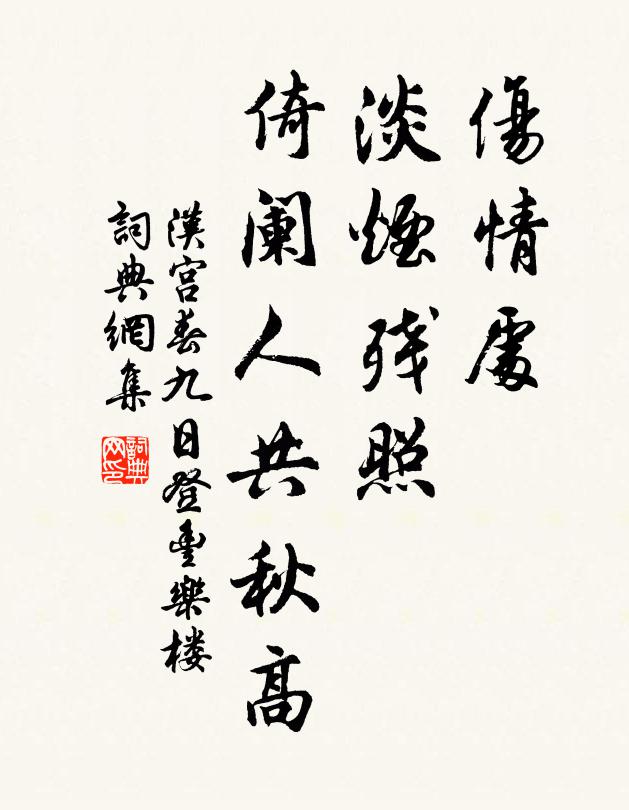 傷情處
淡煙残照
倚阑人共秋高
漢宮春九日登豐樂楼
詞典網集
詞典网印